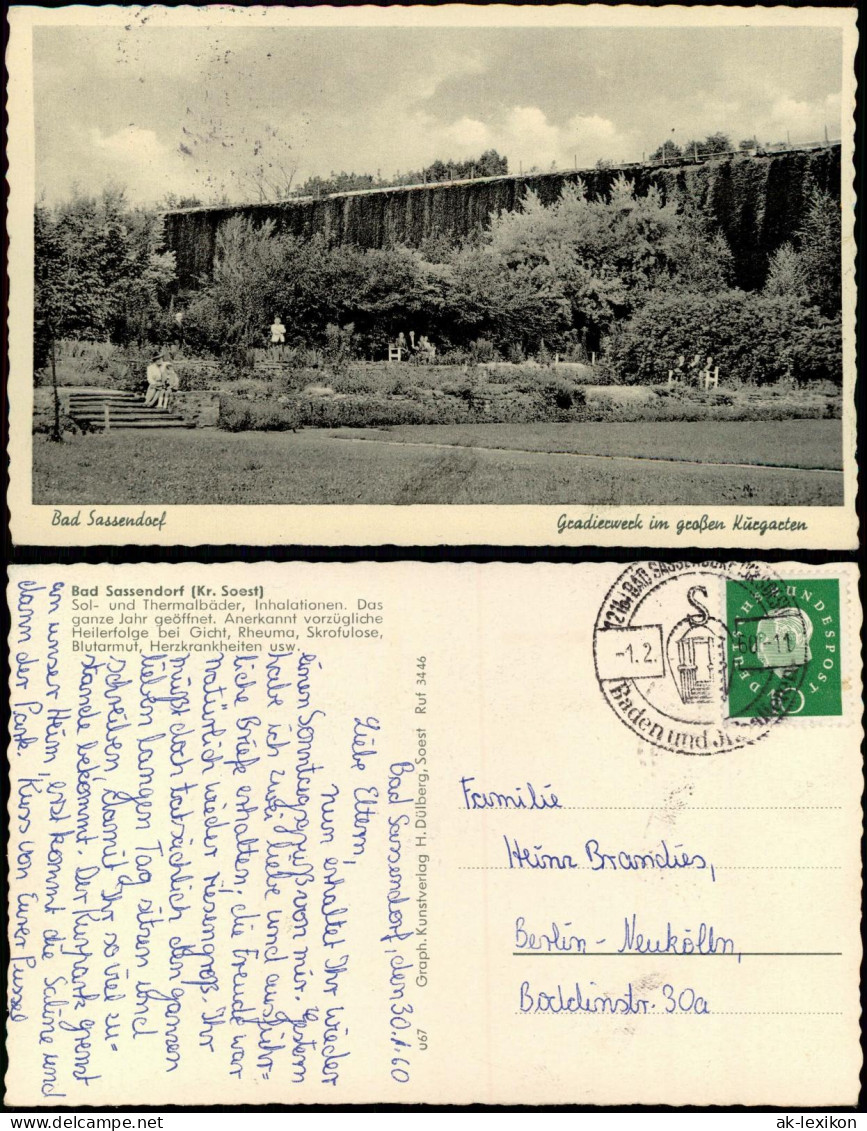 Bad Sassendorf
Gradierwerk im großen Kurgarten
Bad Sassendorf (Kr. Soest)
Sol- und Thermalbäder, Inhalationen. Das
ganze Jahr geöffnet. Anerkannt vorzügliche
Heilerfolge bei Gicht, Rheuma, Skrofulose,
Blutarmut, Herzkrankheiten usw.
Bad Sassendorf, den 30.1.60
Liebe Eltern,
Nun erhaltet Ihr wieder
einen Sonntagsgruß von mir. Gestern
habe ich zwei liebe und ausführ-
liche Briefe erhalten, die Freude war
natürlich wieder riesengroß. Ihr
müßt doch tatsächlich den ganzen
lieben langen Tag sitzen und
schreiben, damit Ihr so viel zu-
stande bekommt. Der Kurpark grenzt
an unser Heim, erst kommt die Saline und
dann der Park. Kuss von Eurer Pussel
u67 Graph. Kunstverlag H. Dülberg, Soest Ruf 3446
BAD SASSENDORF
S
-1.2.
60-11
Baden und
DEUTSCHE BUNDESPOST
Familie
Heinz Brandies,
Berlin-Neukölln,
Boddinstr. 30a
ak-lexikon